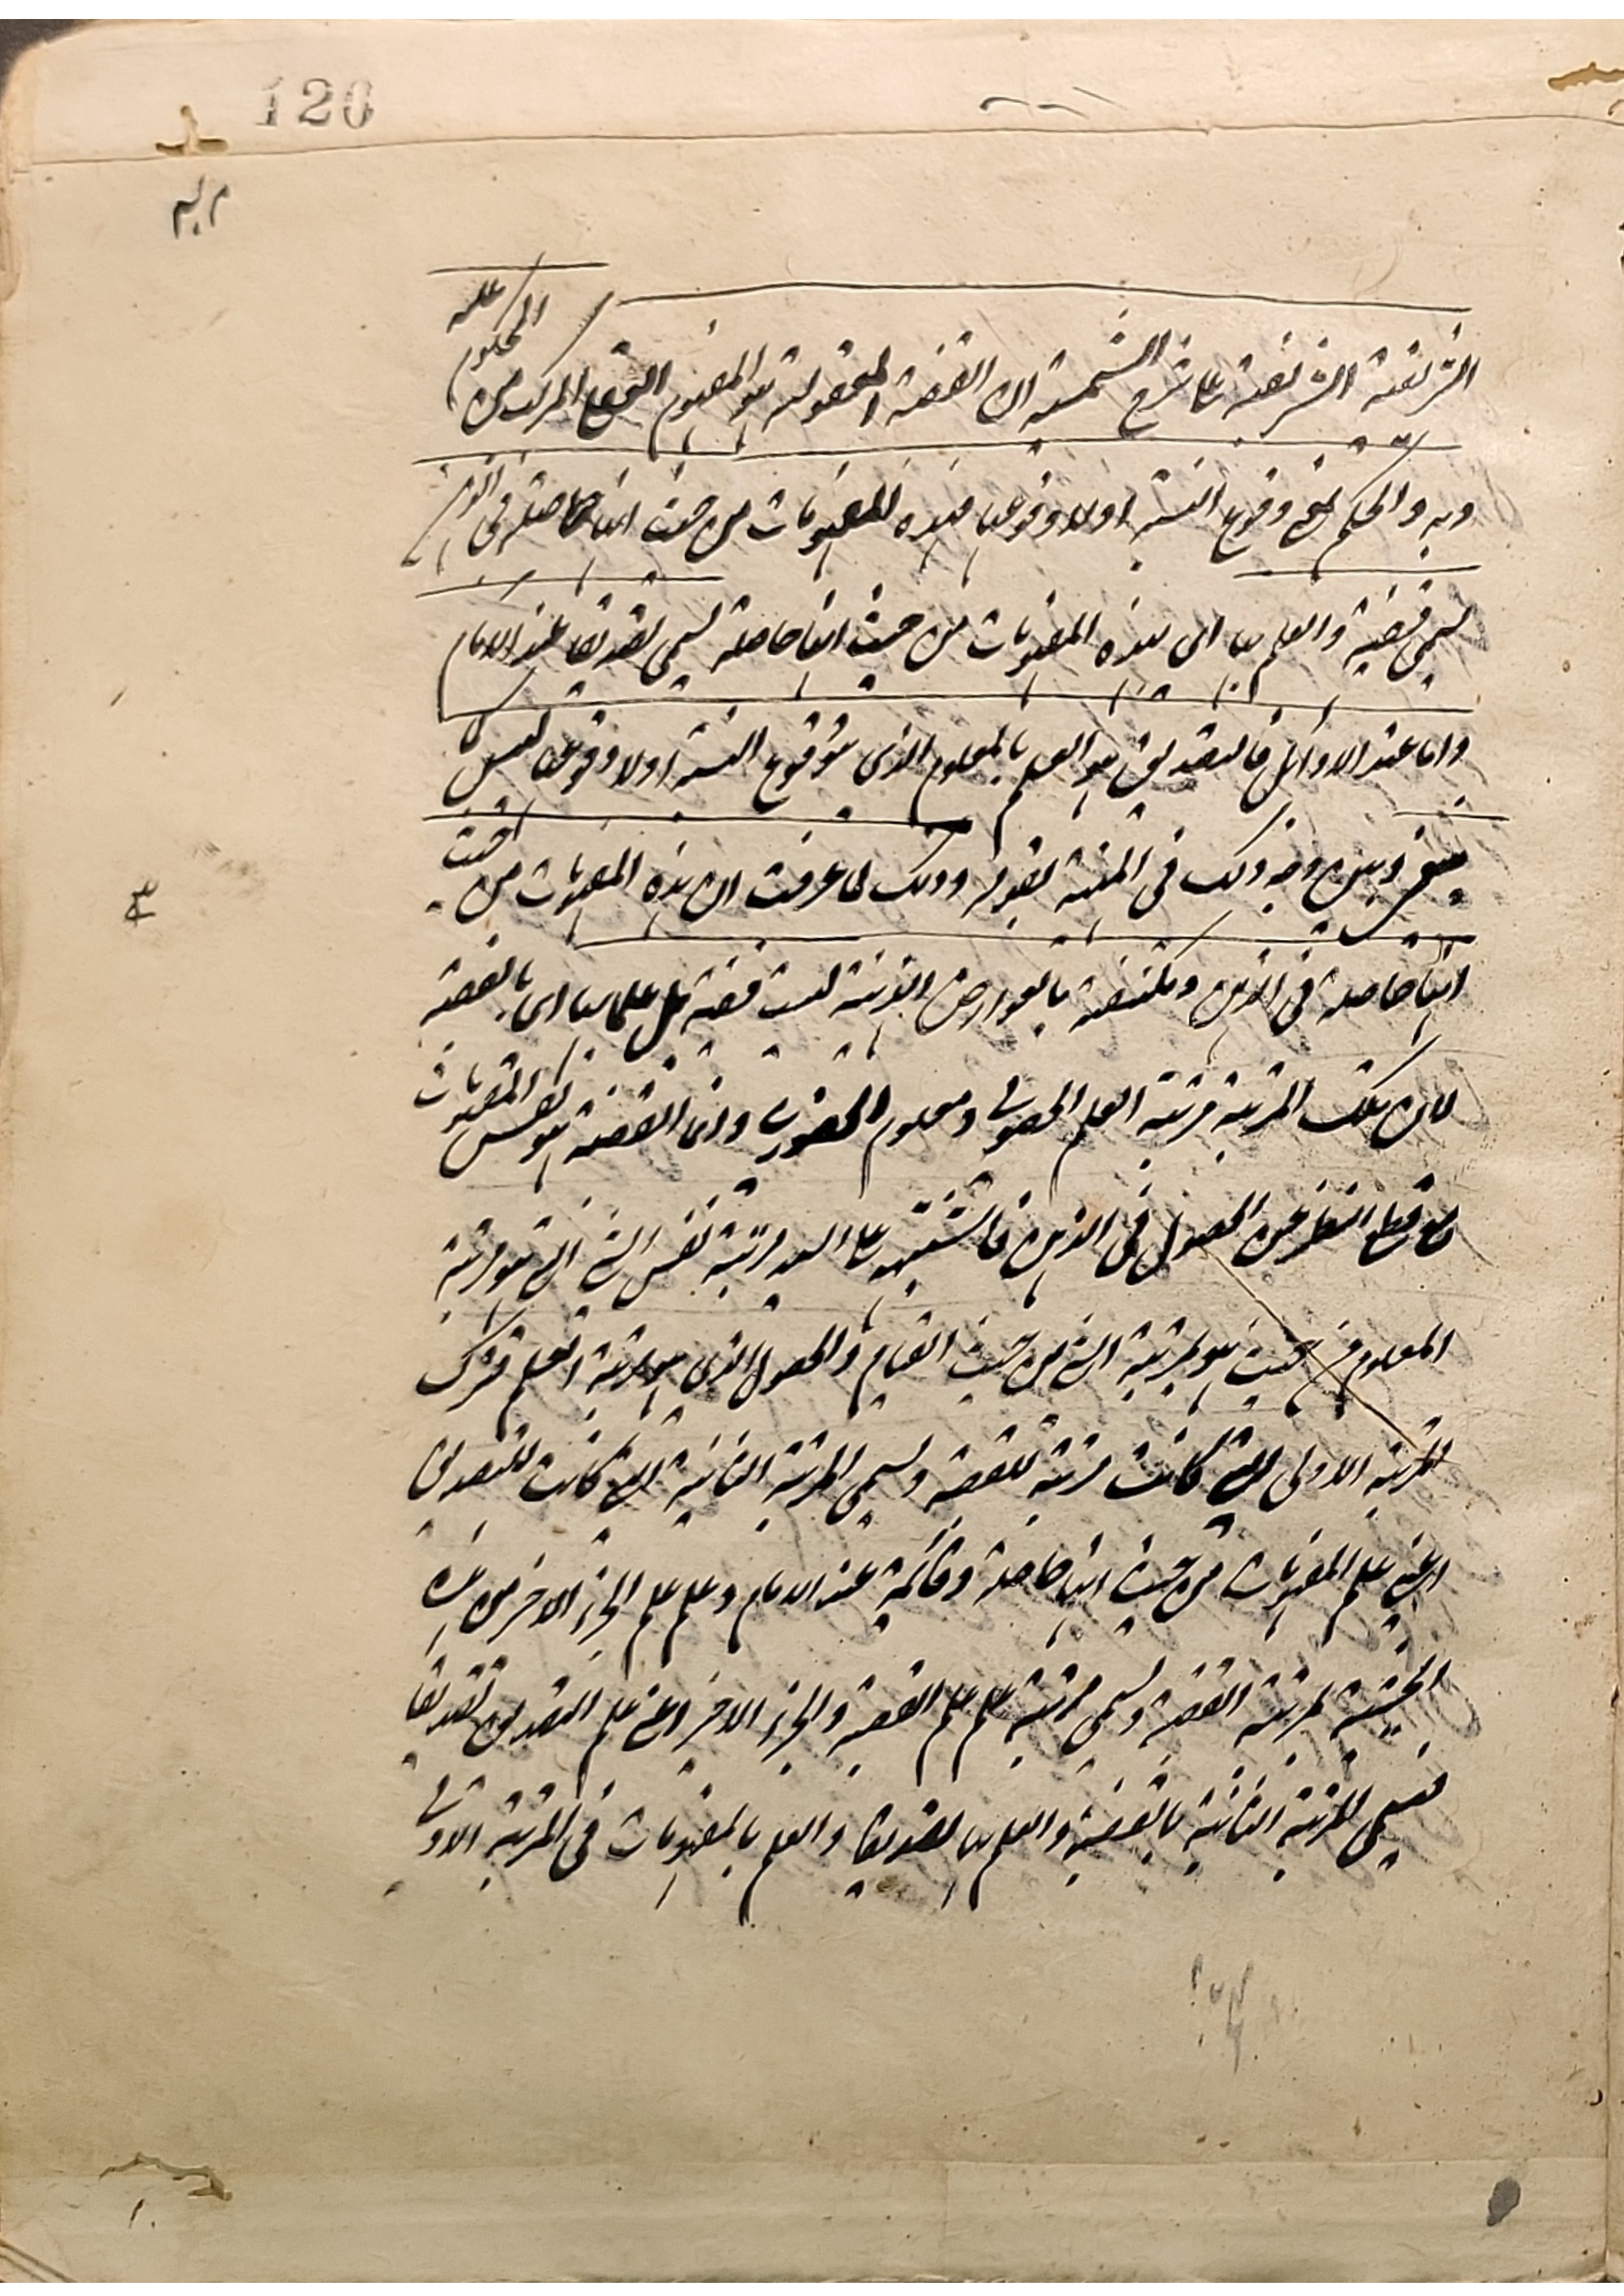 120
الشريفية الشريفية على شرح الشمسية ان القضية المعقولة هو المفهوم العقلى المركب من المحكوم عليه
وبه والحكم بمعنى وقوع النسبة اولا وقوعها فهذه المفهومات من حيث انها حاصلة فى الذهن
يسمى قضية والعلم بها اى بهذه المفهومات من حيث انها حاصلة يسمى تصديقا عند الامام
واما عند الاوائل فالتصديق هو العلم بالمعلوم الذى هو وقوع النسبة اولا وقوعها ليس
وبين وجه ذلك فى المنهية بقوله وذلك لما عرفت ان هذه المفهومات من حيث
انها حاصلة فى الذهن ومكتنفة بالعوارض الذهنية ليست قضية بل علما بها اى بالقضية
لان تلك المرتبة مرتبة العلم الحصولى ومعلوم الحضورى وانما القضية هو نفس المفهومات
مع قطع النظر عن الحصول فى الذهن فاشتبه على السيد مرتبة نفس الشئ التى هو مرتبة
المعلوم من حيث هو بمرتبة الشئ من حيث القيام والحصول الذى هو مرتبة العلم فترك
المرتبة الاولى التى كانت مرتبة للقضية ويسمى المرتبة الثانية التى كانت للتصديق
اعنى علم المفهومات من حيث انها حاصلة وقائمة عند الامام وعلم علم الجزء الاخر من هذه
الحيثية بمرتبة القضية ويسمى مرتبة علم علم القضية والجزء الاخر اعنى علم التصديق تصديقا
فيسمى المرتبة الثانية بالقضية والعلم بها تصديقا والعلم بالمفهومات فى المرتبة الاولى